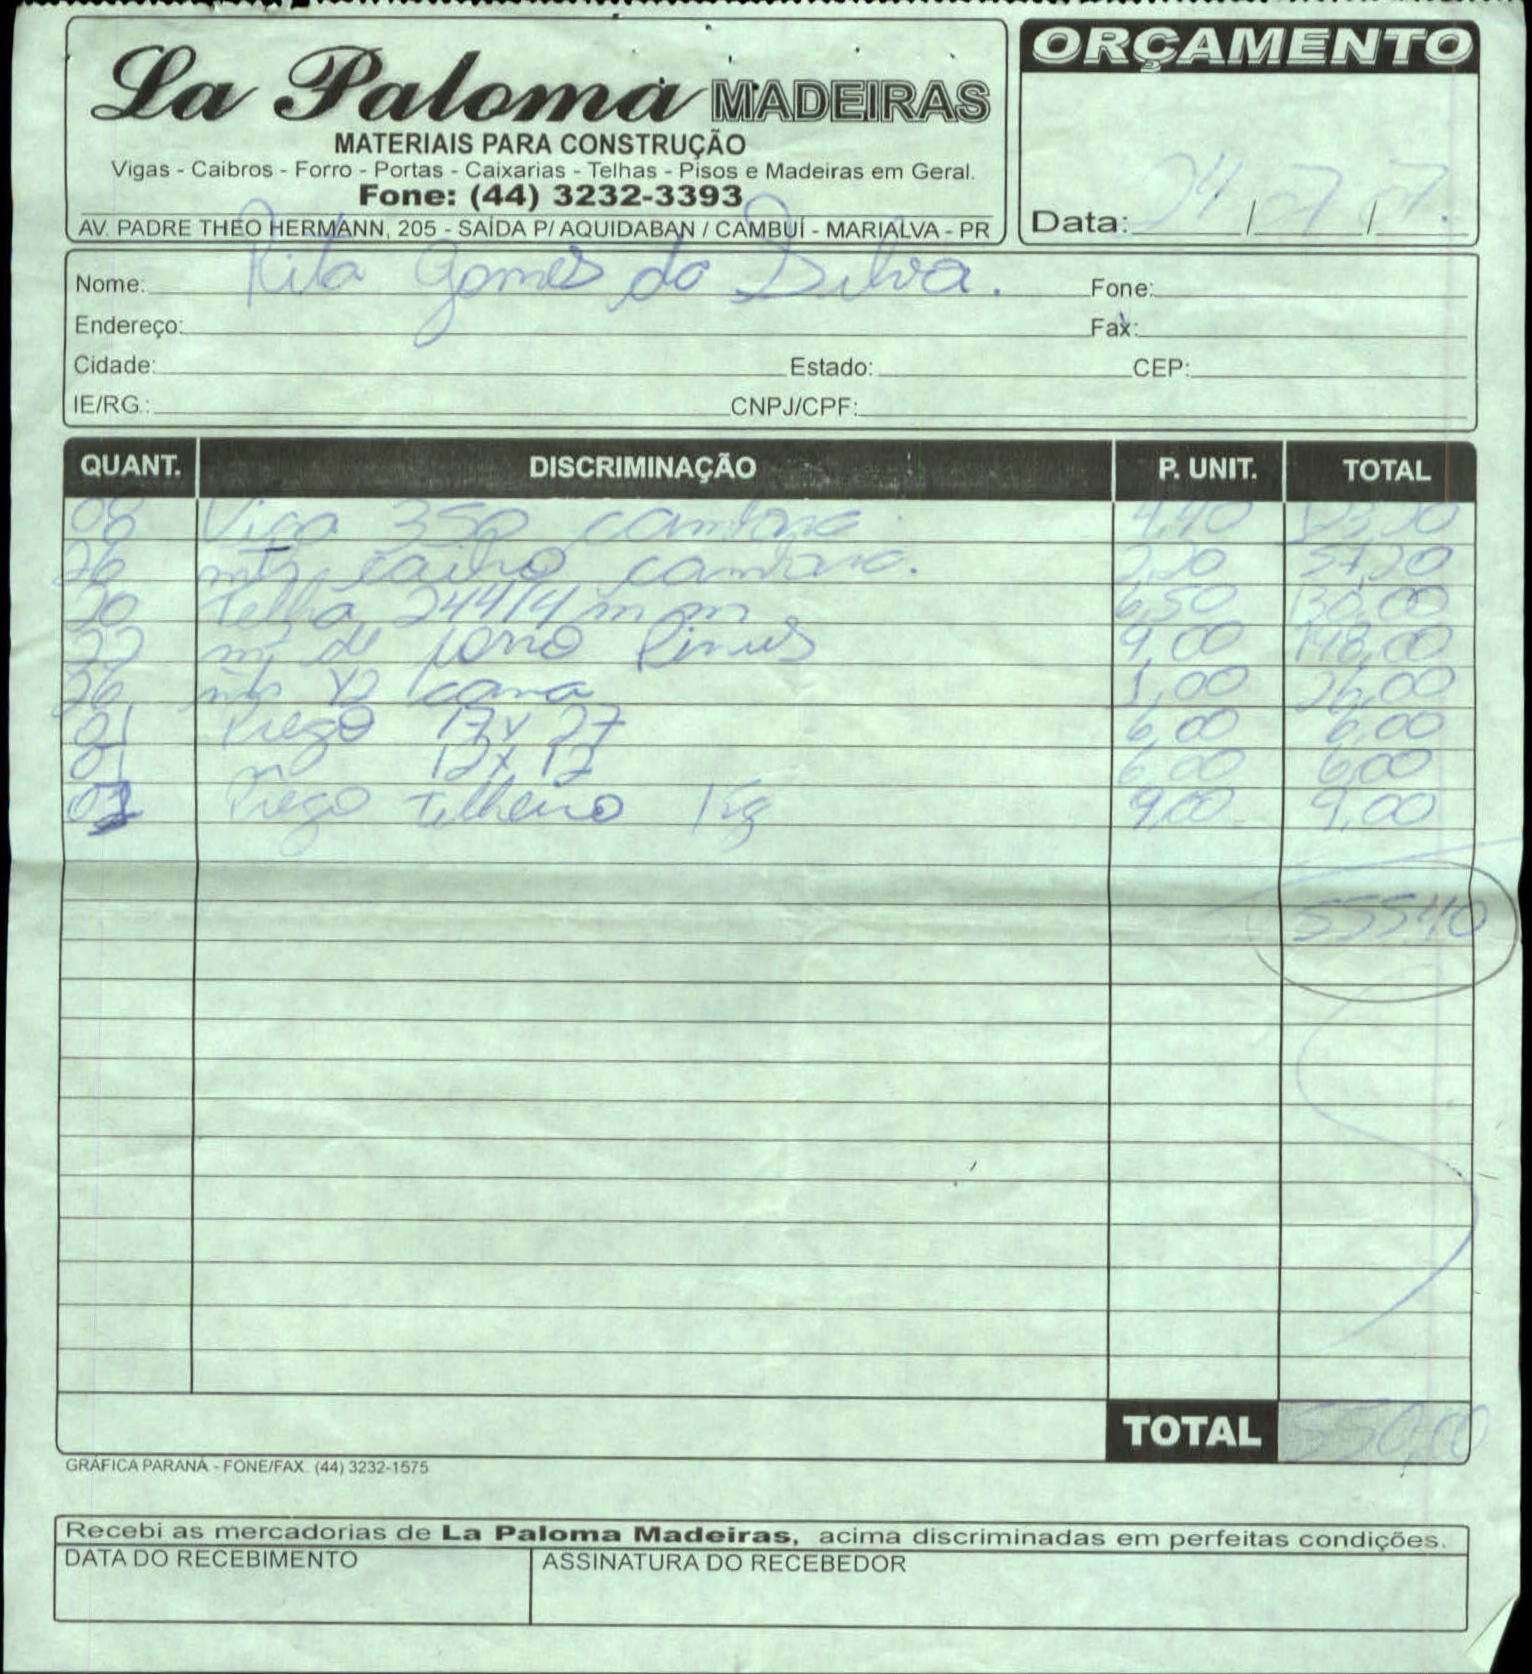 La Paloma MADEIRAS
MATERIAIS PARA CONSTRUÇÃO
Vigas - Caibros - Forro - Portas - Caixarias - Telhas - Pisos e Madeiras em Geral.
Fone: (44) 3232-3393
AV. PADRE THÉO HERMANN, 205 - SAÍDA P/ AQUIDABAN / CAMBUÍ - MARIALVA - PR
ORÇAMENTO
Data: 24/07/07.
Nome: Rita Gomes da Silva. Fone:
Endereço: Fax:
Cidade: Estado: CEP:
IE/RG.: CNPJ/CPF:
QUANT. DISCRIMINAÇÃO P. UNIT. TOTAL
08 Viga 350 cambara 4,40
26 mts caibro cambara. 2,20 57,20
20 Telha 244/4 mm 6,50 130,00
22 m² de forro Pinus 9,00
26 mts 1,00 26,00
01 Prego 17x27 6,00 6,00
01 12x12 6,00 6,00
01 Prego telheiro Kg 9,00 9,00
555,40
TOTAL 550,00
GRÁFICA PARANÁ - FONE/FAX. (44) 3232-1575
Recebi as mercadorias de La Paloma Madeiras, acima discriminadas em perfeitas condições.
DATA DO RECEBIMENTO ASSINATURA DO RECEBEDOR